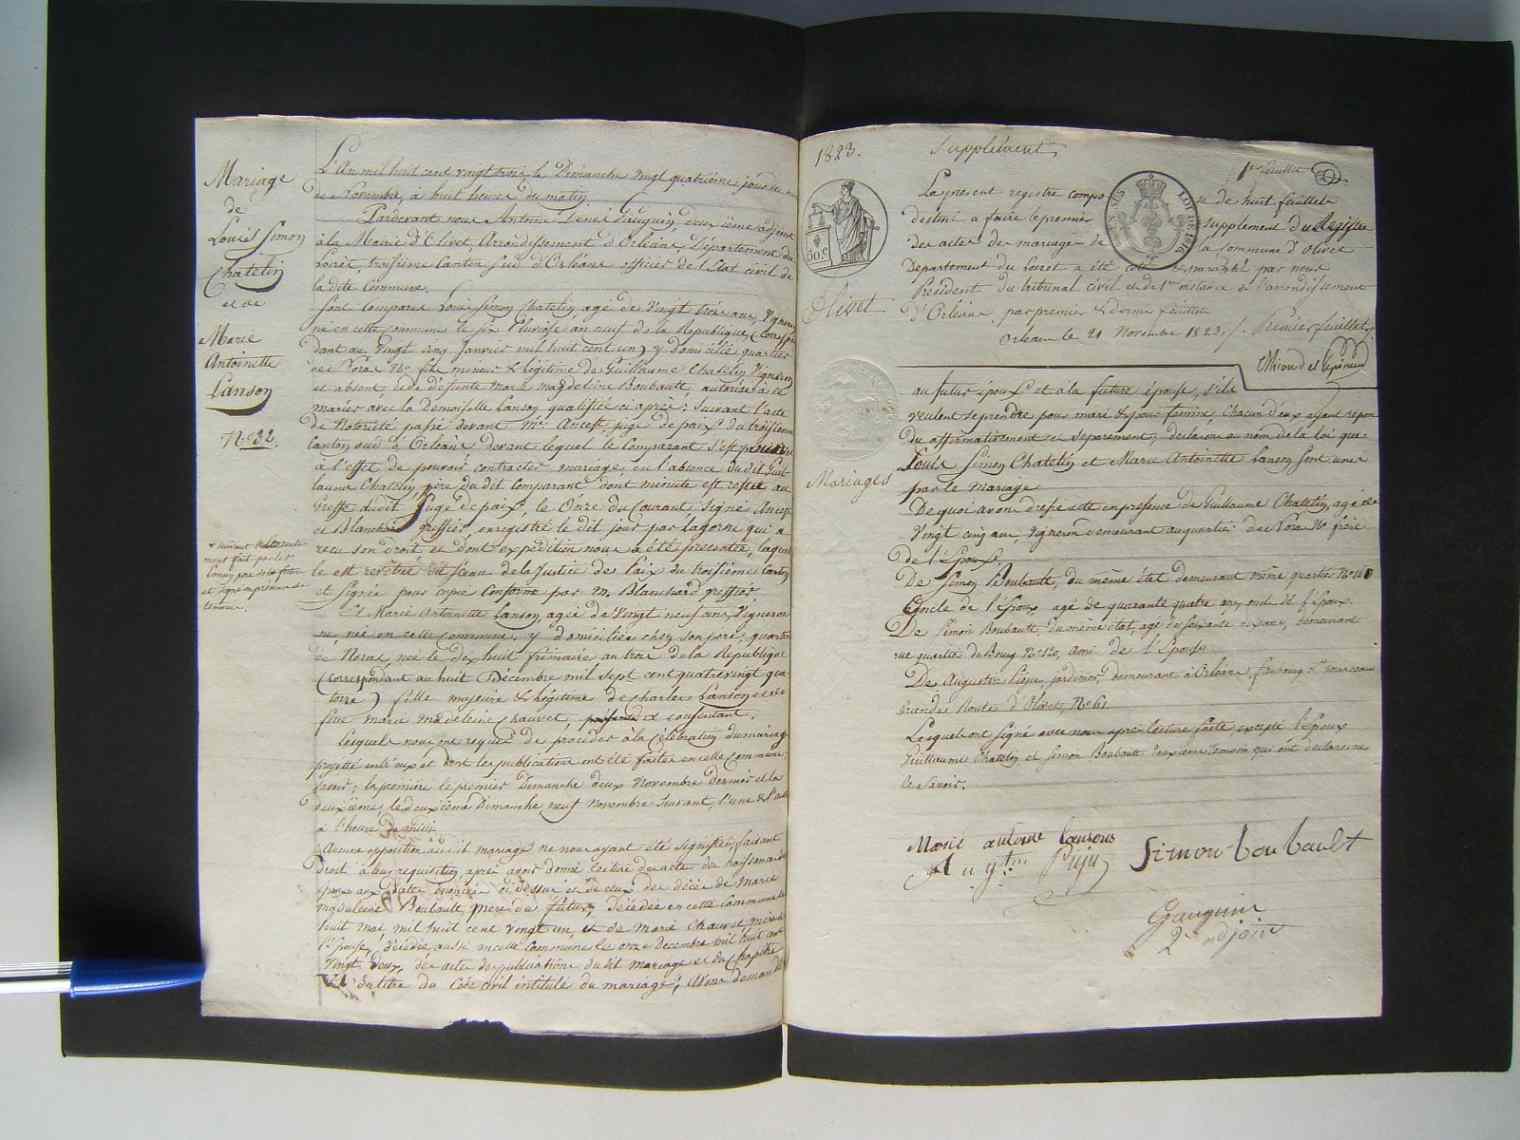 Mariage
de
Louis Simon
Chatelin
et de
Marie
Antoinette
Lanson
N° 32.
L'An mil huit cent vingt trois, le Dimanche vingt quatrième jour du
de Novembre, à huit heures du matin,
Pardevant nous Antoine René Gauguin, deuxième adjoint
à la Mairie d'Olivet, Arrondissement d'Orléans Département du
Loiret, troisième Canton Sud d'Orléans officier de l'Etat civil de
la dite Commune.
Sont comparus Louis Simon Chatelin agé de Vingt trois ans, Vigneron
né en cette commune le Pluviose an neuf de la République, (Corresp
dant au Vingt cinq Janvier mil huit cent un) y domicilié quartier
fils mineur & légitime de Guillaume Chatelin Vigneron
et absent, et de défunte Marie Magdeleine Boubault, autorisé à se
marier avec la Demoiselle Lanson qualifiée ci après; suivant l'acte
de Notoriété passé devant Mr. Juge de paix du troisième
Canton sud d'Orléans devant lequel le Comparant s'est présenté
à l'effet de pouvoir contracter mariage, en l'absence du dit Guil
laume Chatelin, père du dit Comparant dont minute est restée au
Greffe du dit Juge de paix, le Onze du Courant Signé
et Blanchard Greffier, enregistré le dit jour par Lagorne qui a
reçu son droit et dont expédition nous a été présentée, laquel
le est revêtue du Sceau de la Justice de Paix du troisième Canton
et Signée pour copie Conforme par M. Blanchard greffier.
Et Marie Antoinette Lanson, agée de Vingt neuf ans Vigneron
ne, née en cette commune, y domiciliée chez son père, quartier
née le dix huit frimaire an trois de la République
(correspondant au huit Décembre mil sept cent quatrevingt qua
torze) fille majeure & légitime de Charles Lanson et de
feue Marie Madeleine Chauvet, présent et consentant.
Lesquels nous ont requis de procéder à la Célébration du mariage
projetté entr'eux et dont les publications ont été faites en cette Commune,
Savoir; la première le premier Dimanche deux Novembre dernier et la
deuxième, le deuxième Dimanche neuf Novembre Suivant, l'une & l'autre
à l'heure de midi.
Aucune opposition au dit mariage ne nous ayant été signifiée, faisant
Droit à leur réquisition, après avoir donné lecture des actes de naissance des
époux aux dates énoncées ci dessus et de ceux de décès de Marie
Magdeleine Boubault, mère du futur, Décédée en cette Commune le
huit mai mil huit cent vingt un, et de Marie Chauvet mère de
l'épouse, décédée aussi en cette commune le onze décembre mil huit cent
vingt deux, des actes de publications du dit mariage et du Chapitre
VI du titre du Code civil intitulé du mariage; Avons demandé
1823.
Supplément
1er feuillet
Le présent registre compo
sé de huit feuillets
destiné a faire le premier
supplement du Registre
des actes de mariage de
la Commune d'Olivet
Département du Loiret a été coté & paraphé par nous
Président du tribunal civil et de 1ere instance de l'arrondissement
d'Orléans, par premier & dernier feuillet
Orléans le 21 Novembre 1823. Premier feuillet
Olivet
Mariages
au futur époux et à la future épouse, s'ils
veulent se prendre pour mari & pour femme, chacun d'eux ayant répon
du affirmativement et séparément, déclarons au nom de la loi que
Louis Simon Chatelin et Marie Antoinette Lanson sont unis
par le mariage
De quoi avons dressé acte en présence de Guillaume Chatelin, agé de
Vingt cinq ans, Vigneron demeurant au quartier frère
de l'Epoux
De Simon Boubault, du même état demeurant même quartier
Oncle de l'époux agé de quarante quatre ans, oncle de l'époux.
De Simon Boubault, du même état, agé de soixante demeurant
rue quartier du Bourg N° 120, ami de l'Epoux
De Augustin jardinier, demeurant à Orléans, faubourg St Marceau
Grande Route d'Olivet, N° 61
Lesquels ont signé avec nous après lecture faite excepté l'époux
Guillaume Chatelin et Simon Boubault deuxième témoin qui ont déclaré ne
le Savoir.
Marie antoine lansons
Simon boubault
Gauguin
2e adjoint